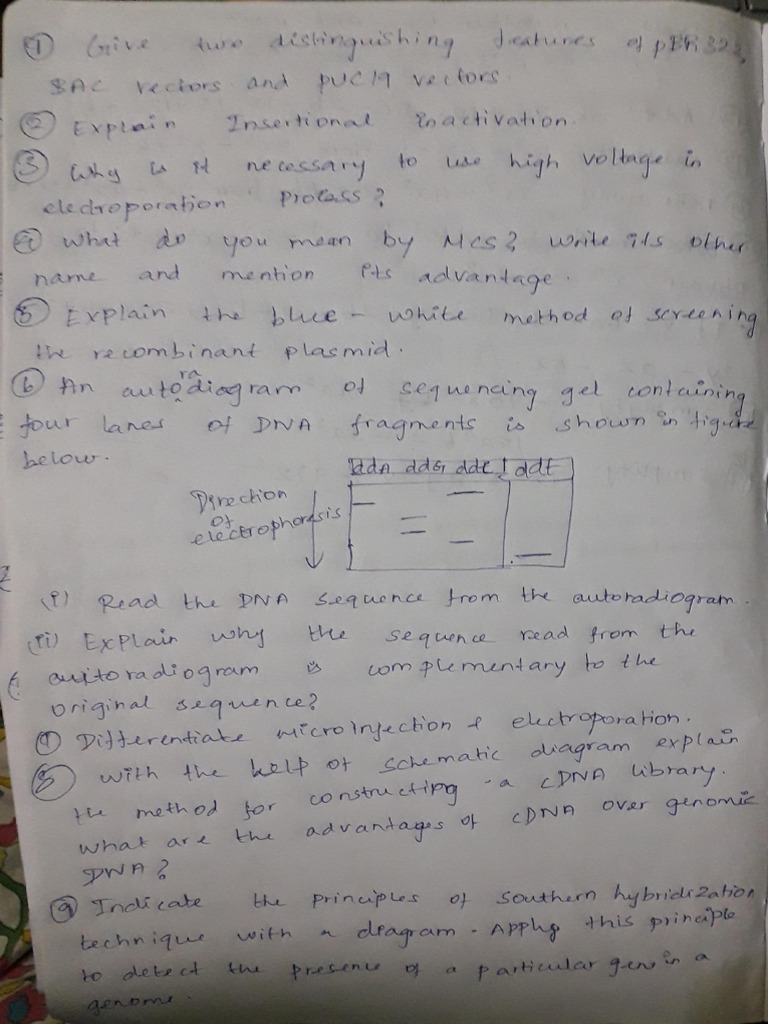 ① Give two distinguishing features of pBR322,
BAC vectors and pUC19 vectors
② Explain Insertional inactivation
③ Why is it necessary to use high voltage in
electroporation process?
④ What do you mean by MCS? Write its other
name and mention its advantage.
⑤ Explain the blue - white method of screening
the recombinant plasmid.
⑥ An autoradiagram of sequencing gel containing
four lanes of DNA fragments is shown in figure
below.
ddA ddG ddC ddt
Direction
of
electrophoresis
(i) Read the DNA sequence from the autoradiogram.
(ii) Explain why the sequence read from the
autoradiogram is complementary to the
original sequence?
⑦ Differentiate microinjection & electroporation.
⑧ With the help of schematic diagram explain
the method for constructing a cDNA library.
What are the advantages of cDNA over genomic
DNA?
⑨ Indicate the principles of southern hybridization
technique with a diagram. Apply this principle
to detect the presence of a particular gene in a
genome.